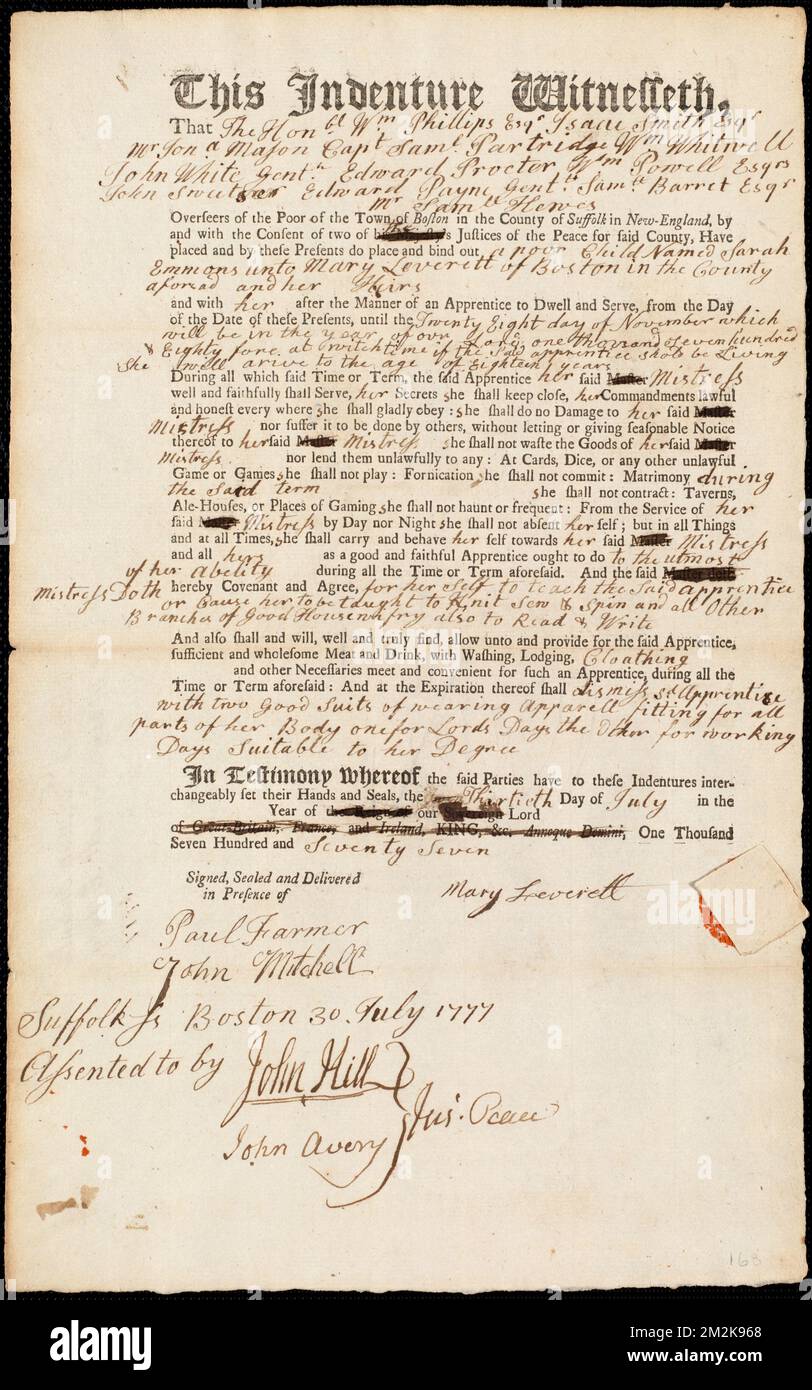 This Indenture Witnesseth,
That The Honbl Wm Phillips Esqr Isaac Smith Esqr
Mr Jona Mason Capt Saml Partridge Wm Whitwell
John White Gentn Edward Procter Wm Powell Esqrs
John Sweetser Edward Payne Gentn Samll Barret Esqr
Mr Samll Hewes
Overseers of the Poor of the Town of Boston in the County of Suffolk in New-England, by
and with the Consent of two of the Justices of the Peace for said County, Have
placed and by these Presents do place and bind out a poor Child Named Sarah
Emmons unto Mary Leverett of Boston in the County
aforead and her Heirs
and with her after the Manner of an Apprentice to Dwell and Serve, from the Day
of the Date of these Presents, until the Twenty Eight day of November which
will be in the year of our Lord one thousand seven hundred
& Eighty fore at witch time if the Said apprentice shols be Living
She will arive to the age of Eighteen years
During all which said Time or Term, the said Apprentice her said Master Mistress
well and faithfully shall Serve, her Secrets she shall keep close, her Commandments lawful
and honest every where she shall gladly obey: she shall do no Damage to her said Master
Mistress nor suffer it to be done by others, without letting or giving seasonable Notice
thereof to her said Master Mistress she shall not waste the Goods of her said Master
Mistress nor lend them unlawfully to any: At Cards, Dice, or any other unlawful
Game or Games she shall not play: Fornication she shall not commit: Matrimony during
the Said term she shall not contract: Taverns,
Ale-Houses, or Places of Gaming she shall not haunt or frequent: From the Service of her
said Master Mistress by Day nor Night she shall not absent her self; but in all Things
and at all Times, she shall carry and behave her self towards her said Master Mistress
and all hers as a good and faithful Apprentice ought to do to the utmost
of her Abelity during all the Time or Term aforesaid. And the said Master doth
Mistress Doth hereby Covenant and Agree, for her Self to teach the Said apprentice
or Cause her to be taught to Knit Sew & Spin and all Other
Branches of Good Housewifry also to Read & Write
And also shall and will, well and truly find, allow unto and provide for the said Apprentice,
sufficient and wholesome Meat and Drink, with Washing, Lodging, Cloathing
and other Necessaries meet and convenient for such an Apprentice, during all the
Time or Term aforesaid: And at the Expiration thereof shall dismiss sd Apprentise
with two Good Suits of wearing Apparell fitting for all
parts of her Body one for Lords Days the Other for working
Days Suitable to her Degree
In Testimony whereof the said Parties have to these Indentures inter-
changeably set their Hands and Seals, the Thirtieth Day of July in the
Year of the Reign of our Sovereign Lord
of Great-Britain, France, and Ireland, KING, &c. Annoque Domini, One Thousand
Seven Hundred and Seventy Seven
Signed, Sealed and Delivered
in Presence of
Mary Leverett
Paul Farmer
John Mitchell
Suffolk Ss Boston 30 July 1777
Assented to by John Hill
John Avery
Jus. Peace
168
alamy
Image ID: 2M2K968
www.alamy.com